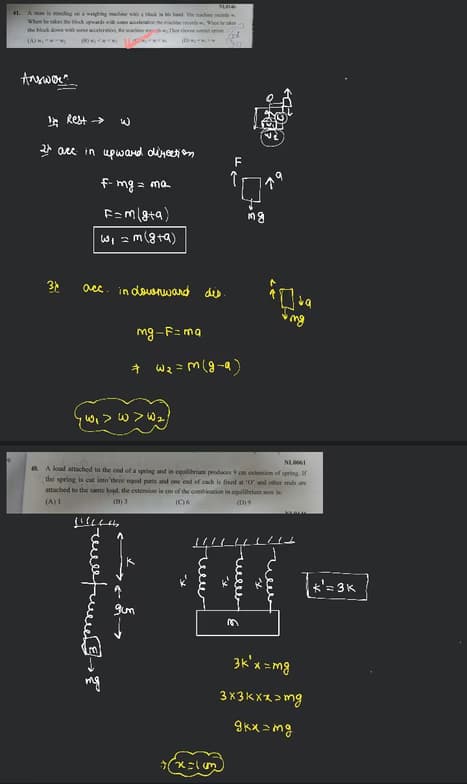 NL0146
41. A man is standing on a weighing machine with a block in his hand. The machine records w.
When he takes the block upwards with some acceleration the machine records w₁. When he takes
the block down with some acceleration, the machine records w₂. Then choose correct option
(A) w₁ = w = w₂ (B) w₁ < w < w₂
Answer:
1) Rest → w
2) acc in upward direction
F - mg = ma
F = m(g+a)
w₁ = m(g+a)
F
a
mg
3) acc. in downward dir.
a
mg
mg - F = ma
⇒ w₂ = m(g-a)
w₁ > w > w₂
NL0061
40. A load attached to the end of a spring and in equilibrium produces 9 cm extension of spring. If
the spring is cut into three equal parts and one end of each is fixed at 'O' and other ends are
attached to the same load, the extension in cm of the combination in equilibrium now is:
(A) 1 (B) 3 (C) 6 (D) 9
K
9cm
m
mg
K' K' K'
m
K' = 3K
3K'x = mg
3×3K×x = mg
9Kx = mg
⇒ x = 1 cm